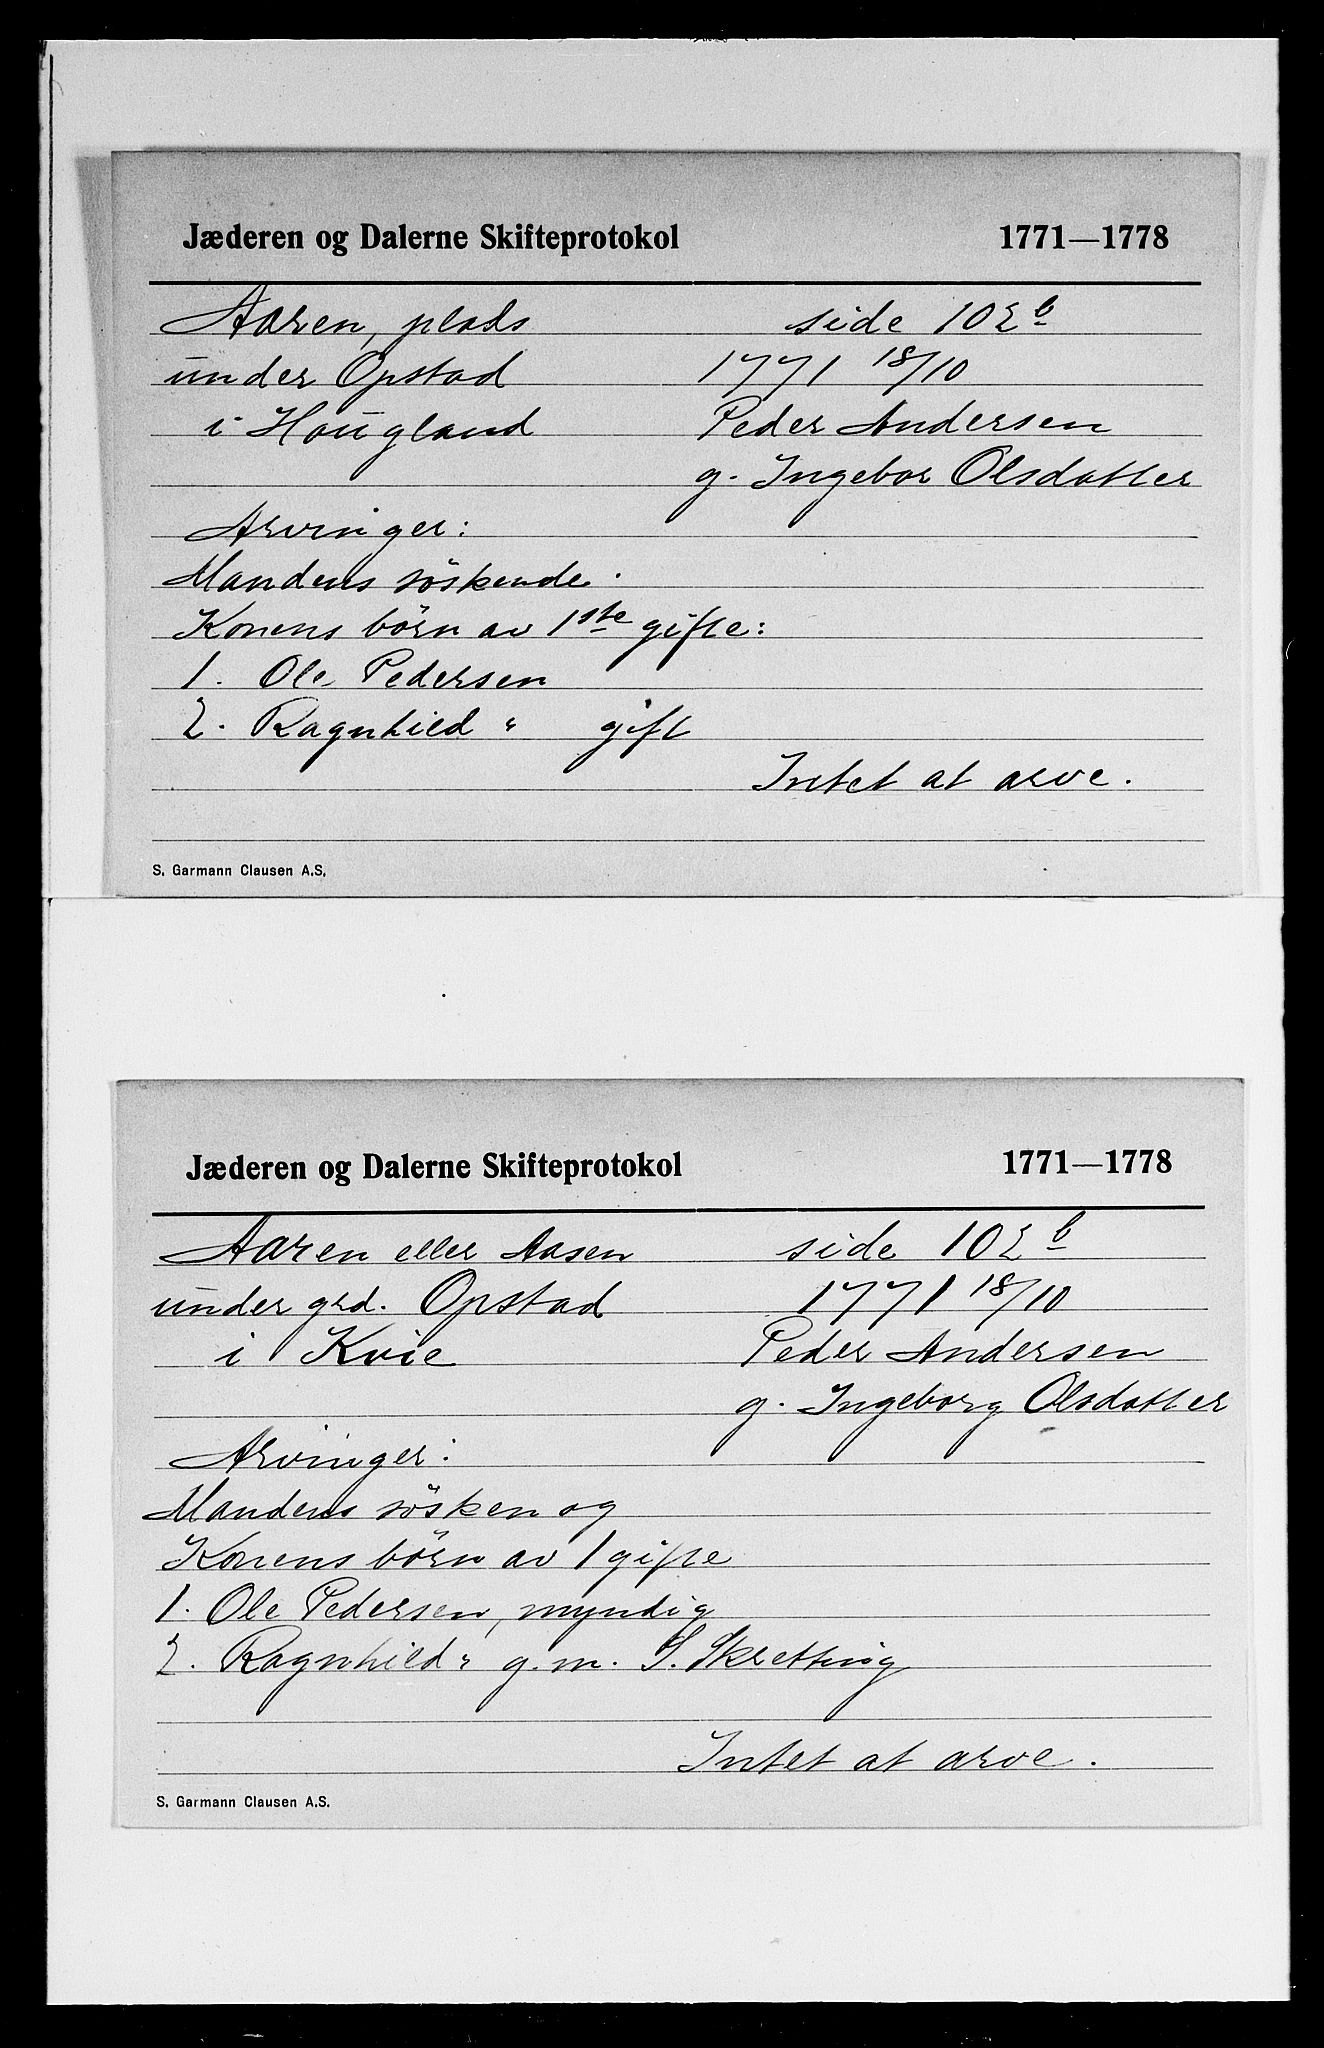 Jæderen og Dalerne Skifteprotokol 1771—1778
Aaren, plads side 102b
under Opstad 1771 18/10
i Hougland Peder Andersen
g. Ingebor Olsdatter
Arvinger:
Mandens söskende.
Konens börn av 1ste gifte:
1. Ole Pedersen
2. Ragnhild " gift
Intet at arve.
S. Garmann Clausen A.S.
Jæderen og Dalerne Skifteprotokol 1771—1778
Aaren eller Aasen side 102b
under grd. Opstad 1771 18/10
i Kvie Peder Andersen
g. Ingeborg Olsdatter
Arvinger:
Mandens sösken og
Konens börn av 1 gifte
1. Ole Pedersen, myndig
2. Ragnhild " g.m. S. Skretting
Intet at arve.
S. Garmann Clausen A.S.